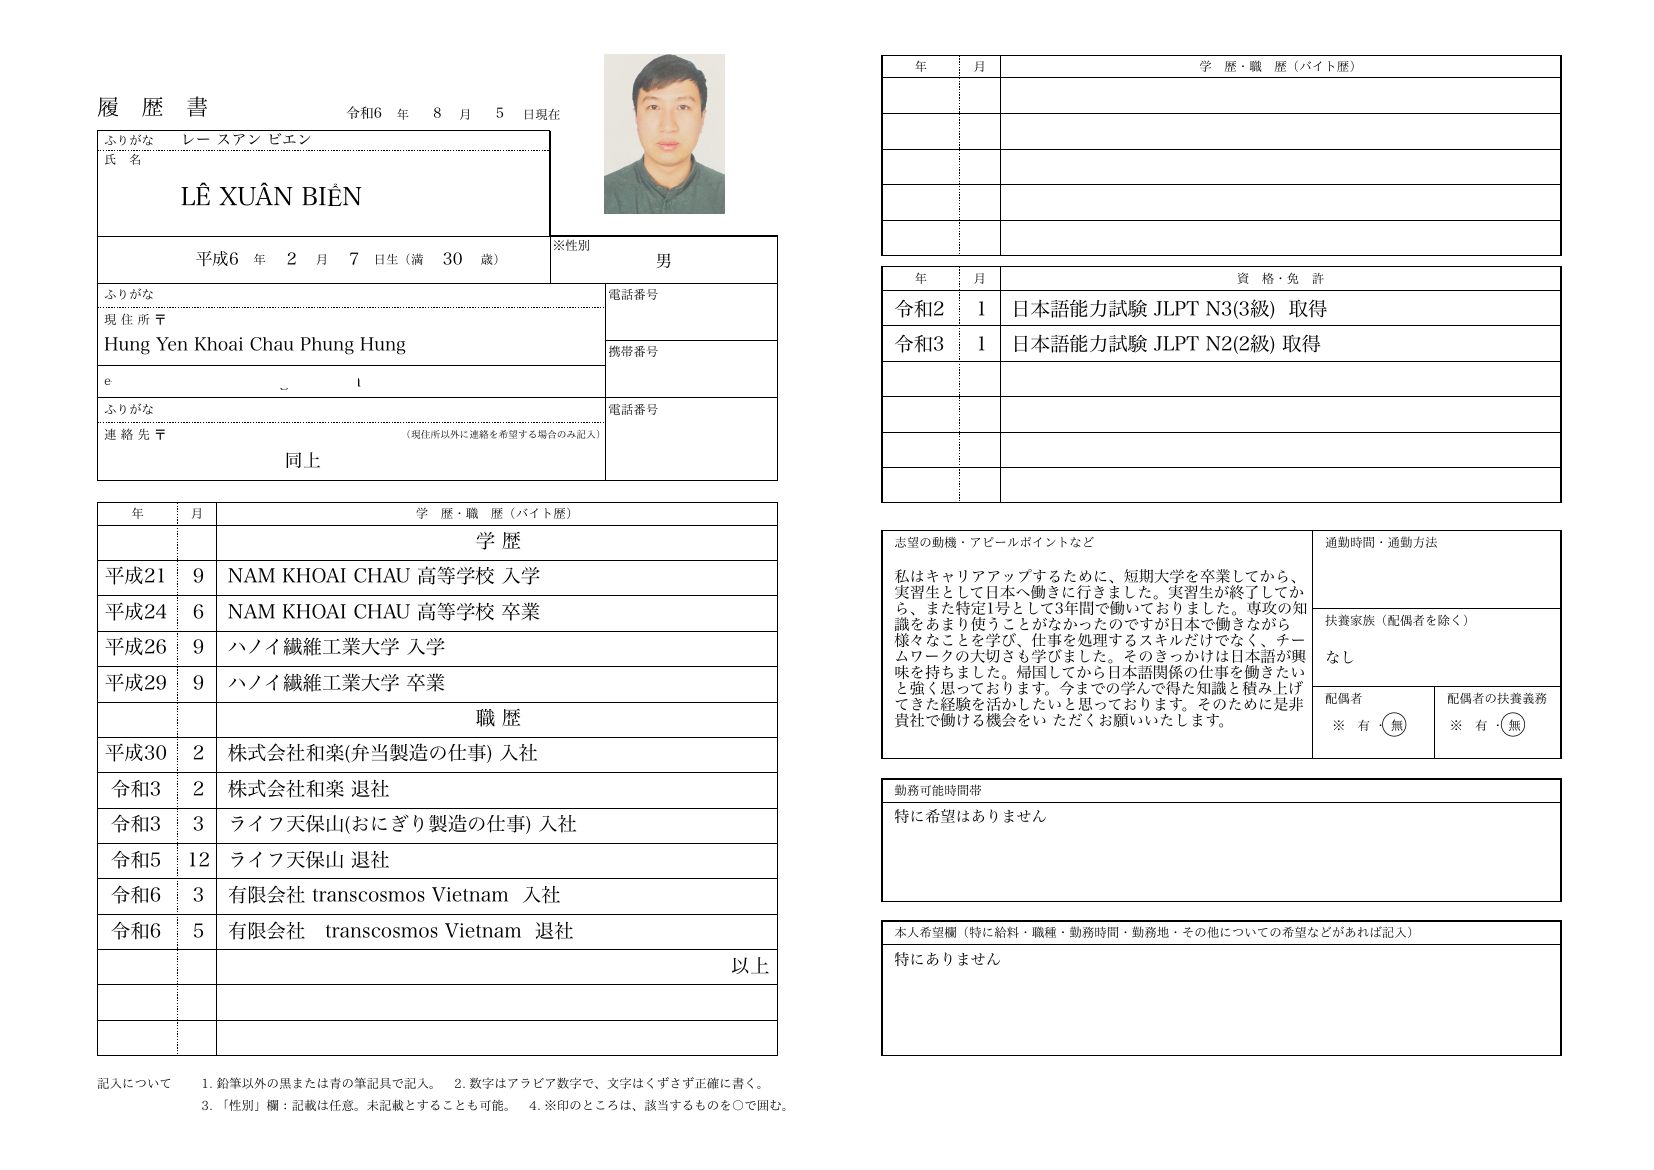 履 歴 書
令和6 年 8 月 5 日現在
ふりがな レー スアン ビエン
氏 名
LÊ XUÂN BIÊN
平成6 年 2 月 7 日生（満 30 歳）
※性別
男
ふりがな
電話番号
現 住 所 〒
Hung Yen Khoai Chau Phung Hung
携帯番号
e
ふりがな
電話番号
連 絡 先 〒 （現住所以外に連絡を希望する場合のみ記入）
同上
年 月 学 歴・職 歴（バイト歴）
学 歴
平成21 9 NAM KHOAI CHAU 高等学校 入学
平成24 6 NAM KHOAI CHAU 高等学校 卒業
平成26 9 ハノイ繊維工業大学 入学
平成29 9 ハノイ繊維工業大学 卒業
職 歴
平成30 2 株式会社和楽(弁当製造の仕事) 入社
令和3 2 株式会社和楽 退社
令和3 3 ライフ天保山(おにぎり製造の仕事) 入社
令和5 12 ライフ天保山 退社
令和6 3 有限会社 transcosmos Vietnam 入社
令和6 5 有限会社 transcosmos Vietnam 退社
以上
記入について 1. 鉛筆以外の黒または青の筆記具で記入。 2. 数字はアラビア数字で、文字はくずさず正確に書く。
3. 「性別」欄：記載は任意。未記載とすることも可能。 4. ※印のところは、該当するものを○で囲む。
年 月 学 歴・職 歴（バイト歴）
年 月 資 格・免 許
令和2 1 日本語能力試験 JLPT N3(3級) 取得
令和3 1 日本語能力試験 JLPT N2(2級) 取得
志望の動機・アピールポイントなど
私はキャリアアップするために、短期大学を卒業してから、
実習生として日本へ働きに行きました。実習生が終了してか
ら、また特定1号として3年間で働いておりました。専攻の知
識をあまり使うことがなかったのですが日本で働きながら
様々なことを学び、仕事を処理するスキルだけでなく、チー
ムワークの大切さも学びました。そのきっかけは日本語が興
味を持ちました。帰国してから日本語関係の仕事を働きたい
と強く思っております。今までの学んで得た知識と積み上げ
てきた経験を活かしたいと思っております。そのために是非
貴社で働ける機会をい ただくお願いいたします。
通勤時間・通勤方法
扶養家族（配偶者を除く）
なし
配偶者
※ 有 ・ 無
配偶者の扶養義務
※ 有 ・ 無
勤務可能時間帯
特に希望はありません
本人希望欄（特に給料・職種・勤務時間・勤務地・その他についての希望などがあれば記入）
特にありません